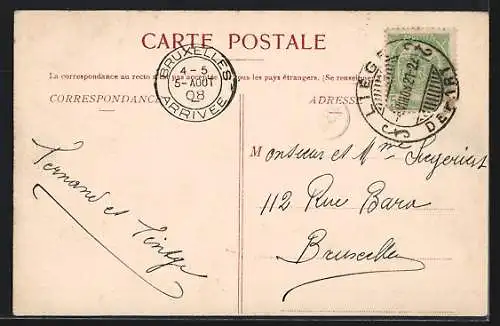 CARTE POSTALE
La correspondance au recto n'est pas acceptée par tous les pays étrangers. (Se renseigner
CORRESPONDANCE
ADRESSE
BRUXELLES
4-5
5-AOUT
08
ARRIVÉE
LIEGE
DEPART
Monsieur et Mme
112 Rue Bara
Bruxelles
Fernand et